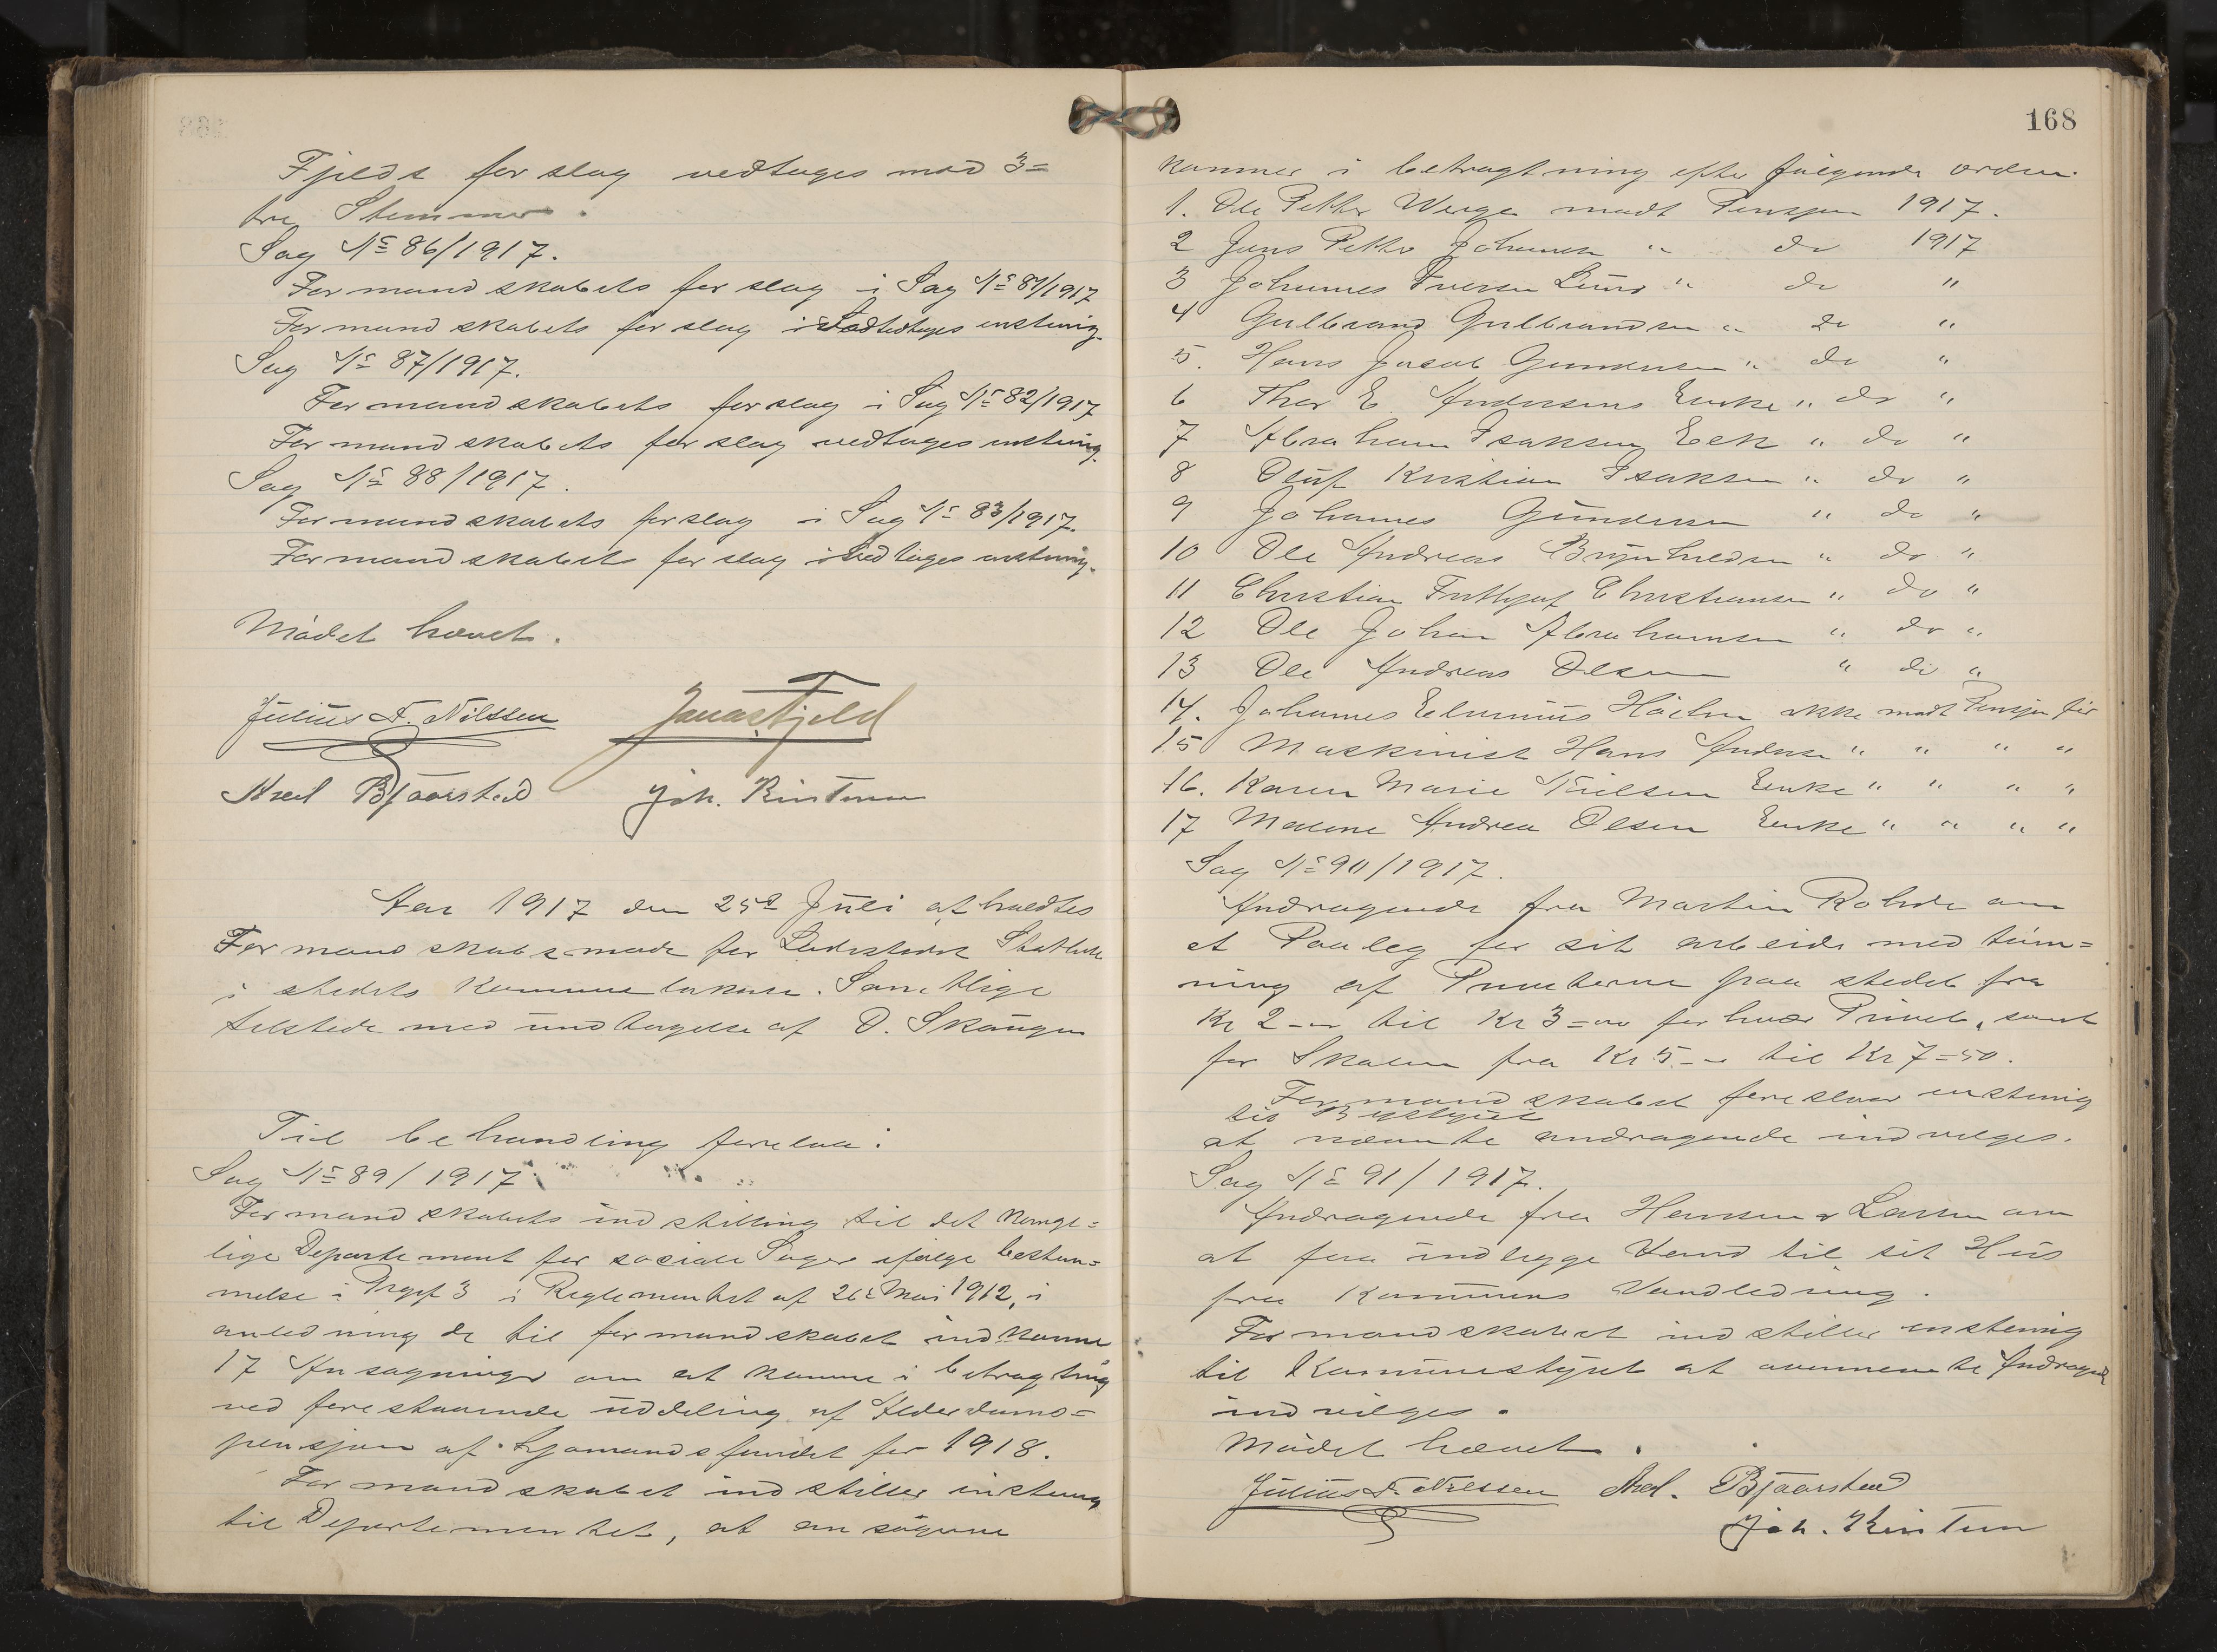 Fjelds forslag vedtages mod 3=
tre Stemmer.
Sag No 86/1917.
Formandskabets forslag i Sag No 81/1917
Formandskabets forslag vedtages enstemig.
Sag No 87/1917.
Formandskabets forslag i Sag No 82/1917
Formandskabets forslag vedtages enstemig.
Sag No 88/1917.
Formandskabets forslag i Sag No 83/1917.
Formandskabets forslag vedtages enstemig.
Mødet hævet.
Julius F. Nilssen Jonas Fjeld
Axel Bjaarstad Joh. Knutsen
Aar 1917 den 25de Juli afholdtes
Formandskabsmøde for
i stedets Kommunelokale. Samtlige
tilstede med undtagelse af O. Skaugen
Til behandling forelaa:
Sag No 89/1917
Formandskabets indstilling til det Konge=
lige Departement for sociale Sager ifølge bestem=
melse i Prgrf 3 i Reglementet af Mai 1912, i
anledning de til formandskabet indkomne
17 Ansøgninger om at komme i betragtning
ved forestaaende uddeling af Alderdoms=
pensjon af Sjømandsfondet for 1918.
Formandskabet indstiller enstemig
til Departementet, at ansøgerne
168
kommer i betragtning efter følgende orden.
1. Ole Petter Werge modt Pensjon 1917.
2 Jens Petter Johansen " do 1917
3 Johannes Iversen Lund " do "
4 Gulbrand Gulbrandsen " do "
5. Hans Jacob Gundersen " do "
6 Thor E. Andersens Enke " do "
7 Abraham Isaksen Eek " do "
8 Oluf Kristian Isaksen " do "
9 Johannes Gundersen " do "
10 Ole Andreas Brynhildsen " do "
11 Christian Fritthjof Christiansen " do "
12 Ole Johan Abrahamsen " do "
13 Ole Andreas Olsen " do "
14. Johannes ikke modt Pensjon før
15 Maskinist Hans Andersen " " " "
16. Karen Marie Nielsen Enke " " " "
17 Malene Andrea Olsen Enke " " " "
Sag No 90/1917.
Andragende fra Martin Rohde om
et Paaleg for sit arbeide med tøm=
ning af Priveterne paa stedet fra
Kr 2-00 til Kr 3=00 for hver Privet, samt
for Skolen fra Kr 5.- til Kr 7=50.
Formandskabet foreslaar enstemig
til Bystyret
at nævnte andragende indvilges.
Sag No 91/1917.
Andragende fra Hansen & Larsen om
at faa indlegge Vand til sit Hus
fra Kommunens Vandledning.
Formandskabet indstiller enstemig
til Kommunestyret at ovennevnte Andragende
indvilges.
Mødet hævet.
Julius F. Nilssen Axel. Bjaarstad
Joh. Knutsen